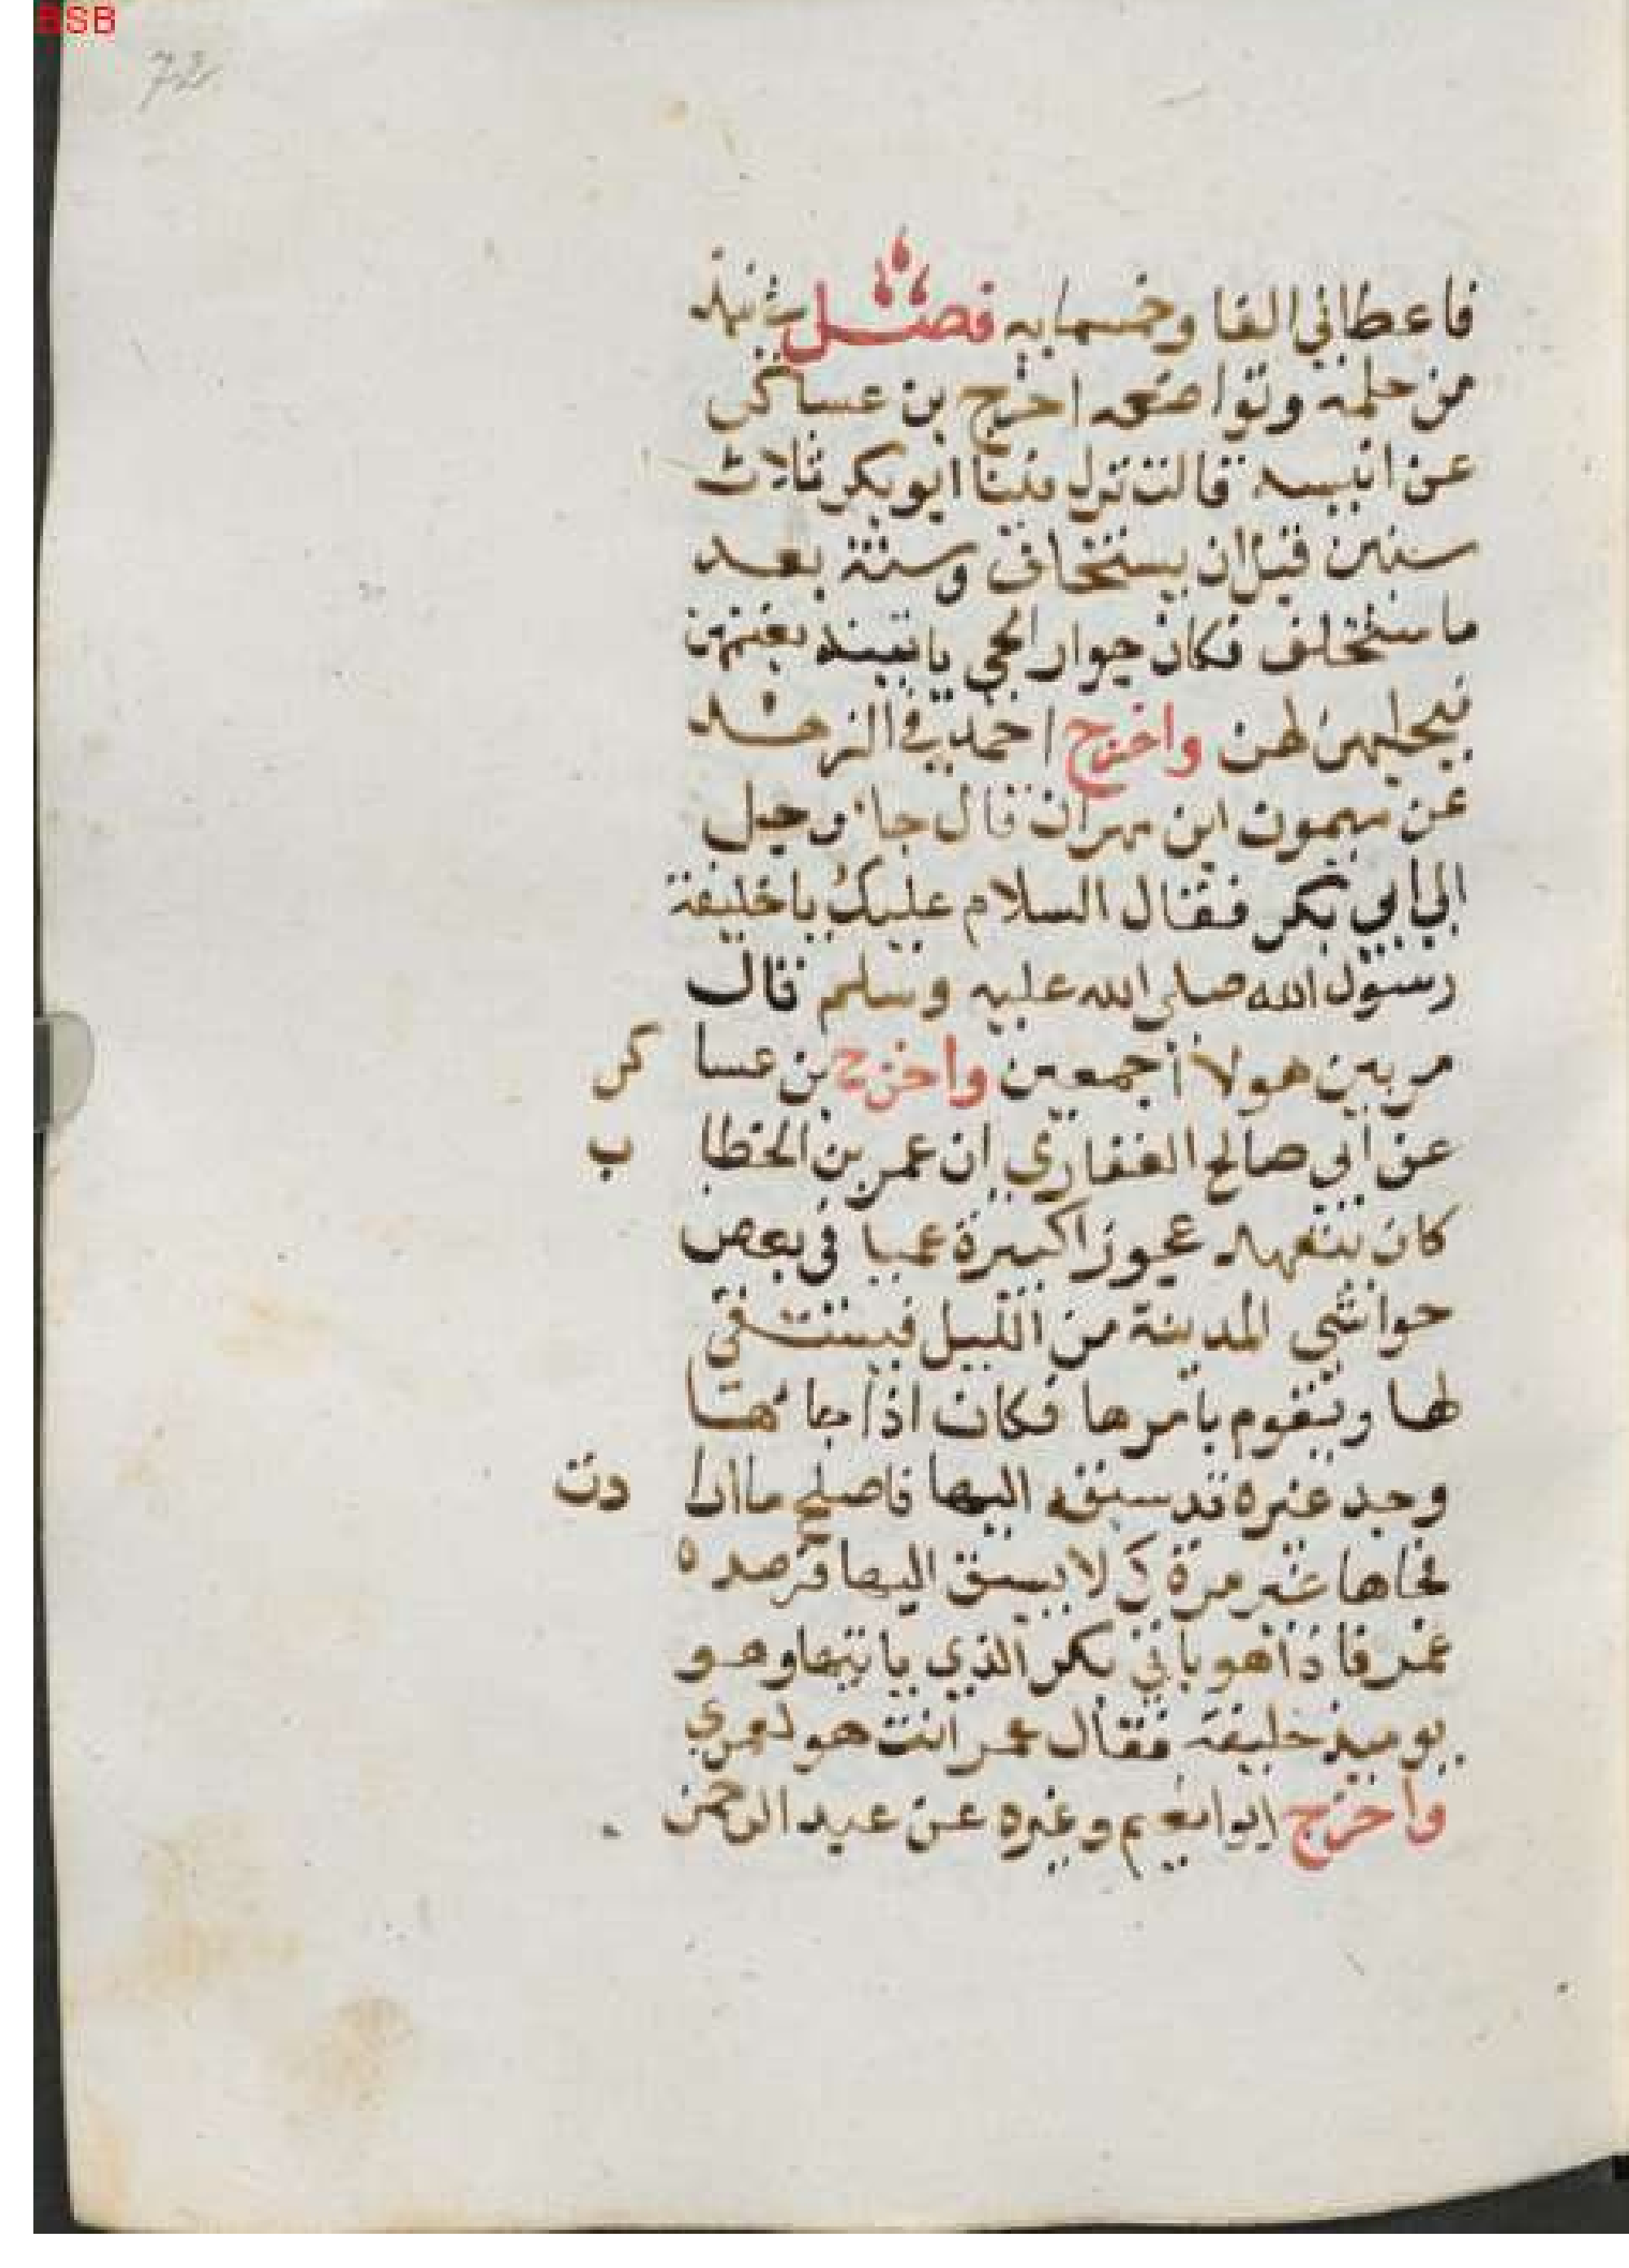 BSB
72
فاعطاني الفا وخمسمايه فصل في نبذ
من حلمه وتواضعه اخرج بن عساكر
عن انيسه قالت نزل فينا ابو بكر ثلاث
سنين قبل ان يستخلف وسنة بعد
ما ستخلف فكان جوار الحي ياتينه بغنمهن
فيحلبهن لهن واخرج احمد في الزهد
عن ميمون ابن مهران قال جا رجل
الى ابي بكر فقال السلام عليك يا خليفة
رسول الله صلى الله عليه وسلم قال
من بين هولا اجمعين واخرج بن عساكر
عن ابي صالح الغفاري ان عمر بن الخطاب
كان يتعهد عجوزا كبيرة عميا في بعض
حواشي المدينة من الليل فيستقي
لها ويقوم بامرها فكان اذا جاءها
وجد غيره قد سبقه اليها فاصلح ما ارادت
فجاها غير مرة كي لا يسبق اليها فرصده
عمر فاذا هو بابي بكر الذي ياتيها وهو
يوميذ خليفة فقال عمر انت هو لعمري
واخرج ابوا نعيم وغيره عن عبد الرحمن